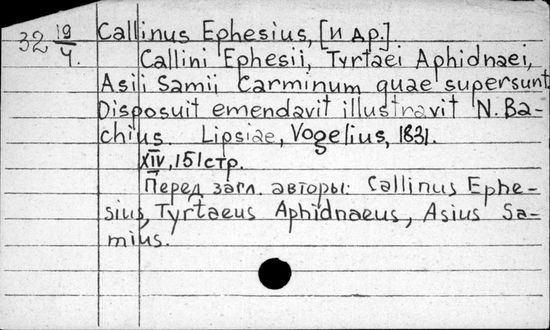 32 19/4. Callinus Ephesius, [и др.]
Callini Ephesii, Tyrtaei Aphidnaei,
Asii Samii Carminum quae supersunt.
Disposuit emendavit illustravit N. Ba-
chius. Lipsiae, Vogelius, 1831.
XIV, 151 стр.
Перед загл. авторы: Callinus Ephe-
sius, Tyrtaeus Aphidnaeus, Asius Sa-
mius.